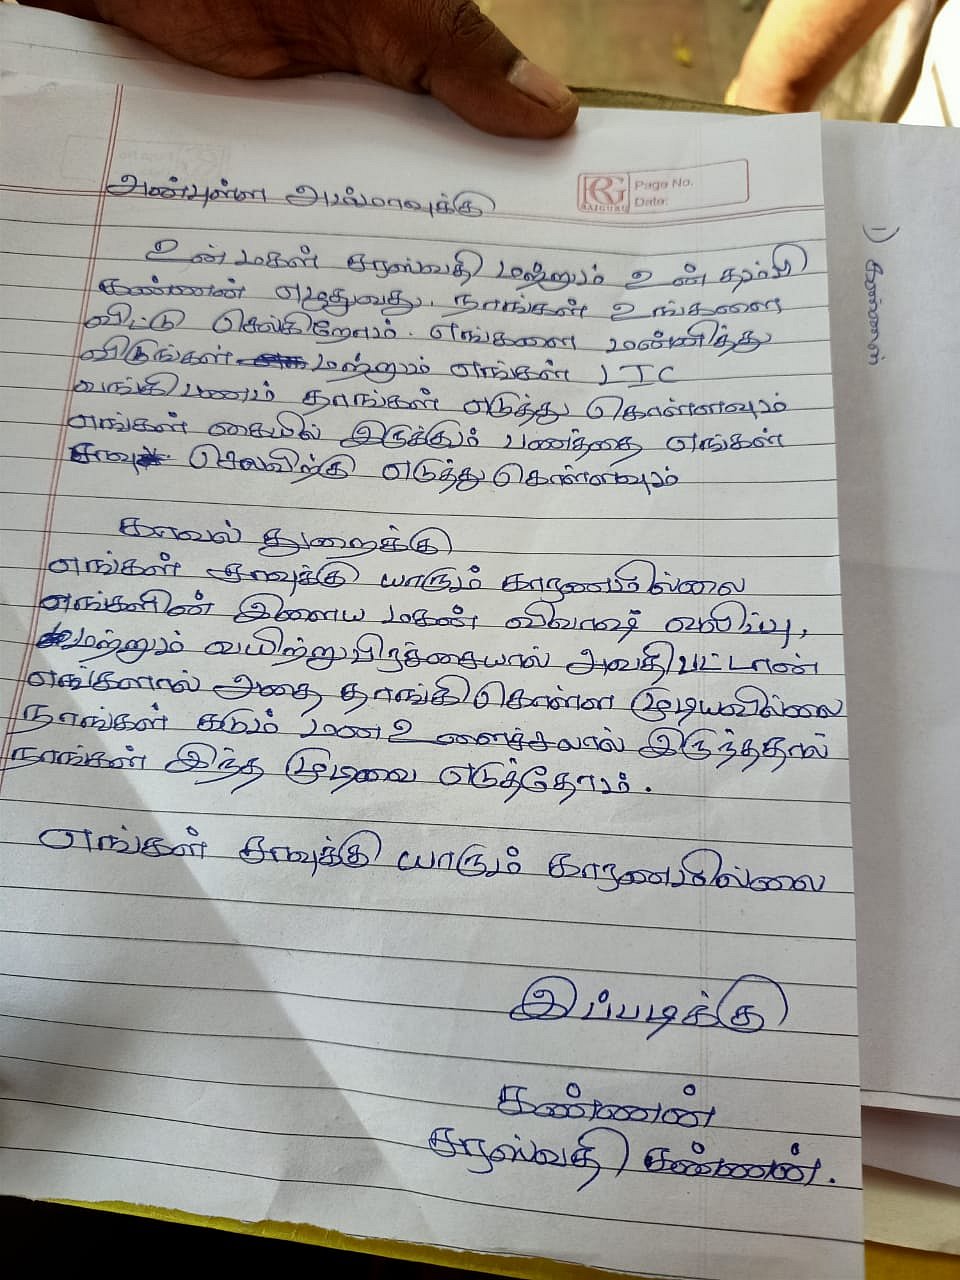 அன்புள்ள அம்மாவுக்கு
RG
RAJGURU
Page No.
Date:
உன் மகள் சரஸ்வதி மற்றும் உன் தம்பி
கண்ணன் எழுதுவது. நாங்கள் உங்களை
விட்டு செல்கிறோம். எங்களை மன்னித்து
விடுங்கள் மற்றும் எங்கள் LIC
வங்கி பணம் தாங்கள் எடுத்து கொள்ளவும்
எங்கள் கையில் இருக்கும் பணத்தை எங்கள்
செலவிற்கு எடுத்து கொள்ளவும்
காவல் துறைக்கு
எங்கள் சாவுக்கு யாரும் காரணமில்லை
எங்களின் இளைய மகன் வலிப்பு,
மற்றும் வயிற்று பிரச்சையால் அவதிபட்டான்
எங்களால் அதை தாங்கி கொள்ள முடியவில்லை
நாங்கள் கடும் மன உளைச்சலால் இருந்ததால்
நாங்கள் இந்த முடிவை எடுத்தோம்.
எங்கள் சாவுக்கு யாரும் காரணமில்லை
இப்படிக்கு
கண்ணன்
சரஸ்வதி கண்ணன்.
1)